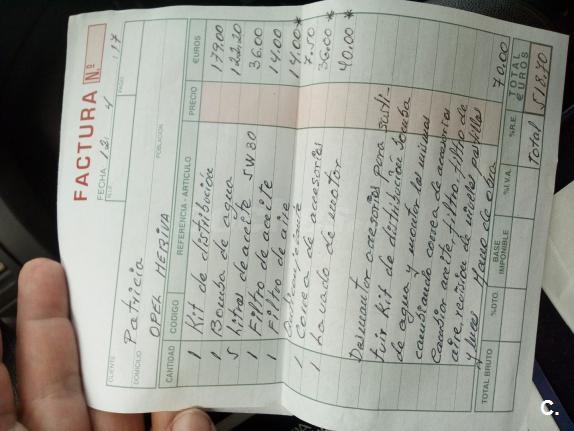 FACTURA Nº
FECHA 12 4 17
N.I.F.
CLIENTE Patricia
DOMICILIO OPEL MERIVA POBLACION
CANTIDAD CODIGO REFERENCIA - ARTICULO PRECIO €UROS
1 Kit de distribución 179.00
1 Bomba de agua 122.20
5 litros de aceite 5W30 36.00
1 Filtro de aceite 14.00
1 Filtro de aire 14.00*
Anticongelante 7.50
1 Correa de accesorios 36.00*
1 Lavado de motor 40.00*
Desmontar accesorios para susti-
tuir Kit de distribución bomba
de agua y montar los mismos
cambiando correa de accesorios
Cambiar aceite, filtro, filtro de
aire, revision de niveles pastillas
y luces Mano de obra 70.00
TOTAL BRUTO %DTO. BASE IMPONIBLE %I.V.A. %R.E. TOTAL €UROS
Total 518.70
C.